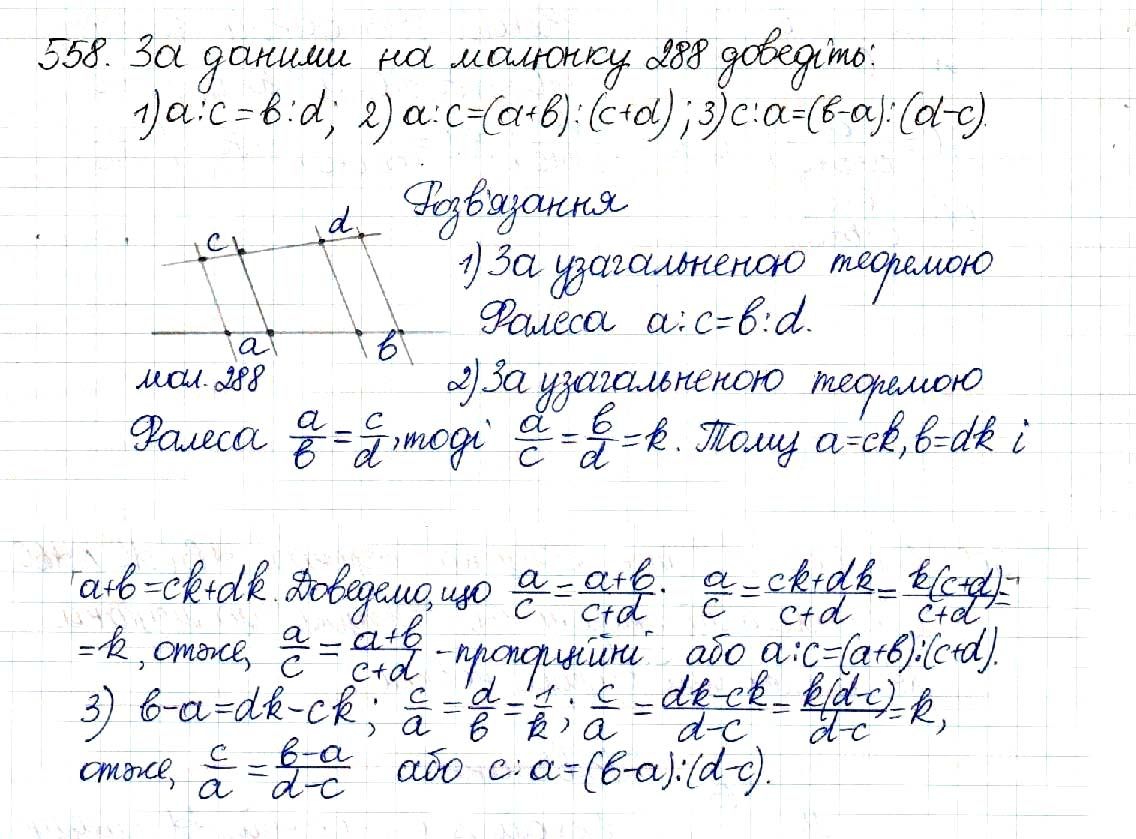 558. За даними на малюнку 288 доведіть:
1) a:c=b:d; 2) a:c=(a+b):(c+d); 3) c:a=(b-a):(d-c).
Розв'язання
c d
1) За узагальненою теоремою
Фалеса a:c=b:d.
a b
мал. 288
2) За узагальненою теоремою
Фалеса a/b = c/d, тоді a/c = b/d = k. Тому a=ck, b=dk і
a+b=ck+dk. Доведемо, що a/c = (a+b)/(c+d). a/c = (ck+dk)/(c+d) = k(c+d)/(c+d) =
=k, отже, a/c = (a+b)/(c+d) - пропорційні або a:c=(a+b):(c+d).
3) b-a=dk-ck; c/a = d/b = 1/k; c/a = (dk-ck)/(d-c) = k(d-c)/(d-c) = k,
отже, c/a = (b-a)/(d-c) або c:a=(b-a):(d-c).